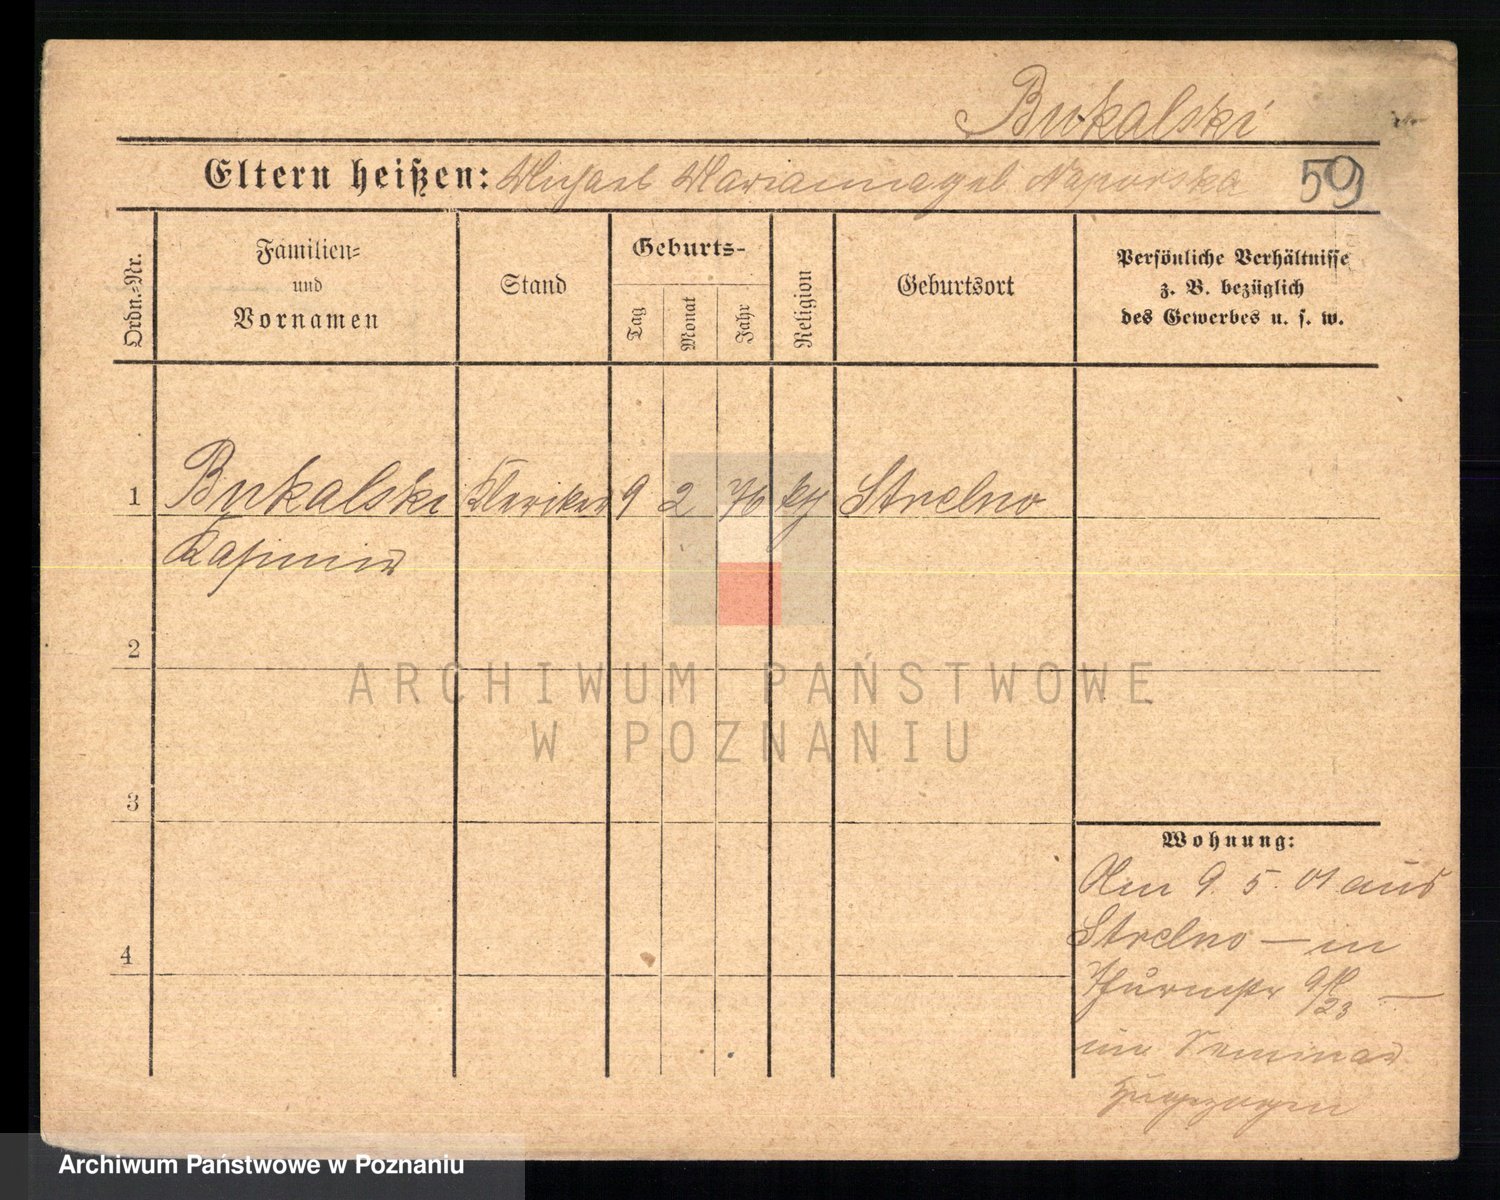 Bukalski
Eltern heißen: Michael Marianna geb Naporska
59
Ordn.-Nr.
Familien-
und
Vornamen
Stand
Geburts-
Tag
Monat
Jahr
Religion
Geburtsort
Persönliche Verhältnisse
z. B. bezüglich
des Gewerbes u. s. w.
1 Bukalski Kleriker 9 2 76 kth Strelno
Kasimir
2
3
4
Wohnung:
Am 9. 5. 01 aus
Strelno — in
Thurmstr —
im Seminar
zugezogen
ARCHIWUM PAŃSTWOWE
W POZNANIU
Archiwum Państwowe w Poznaniu